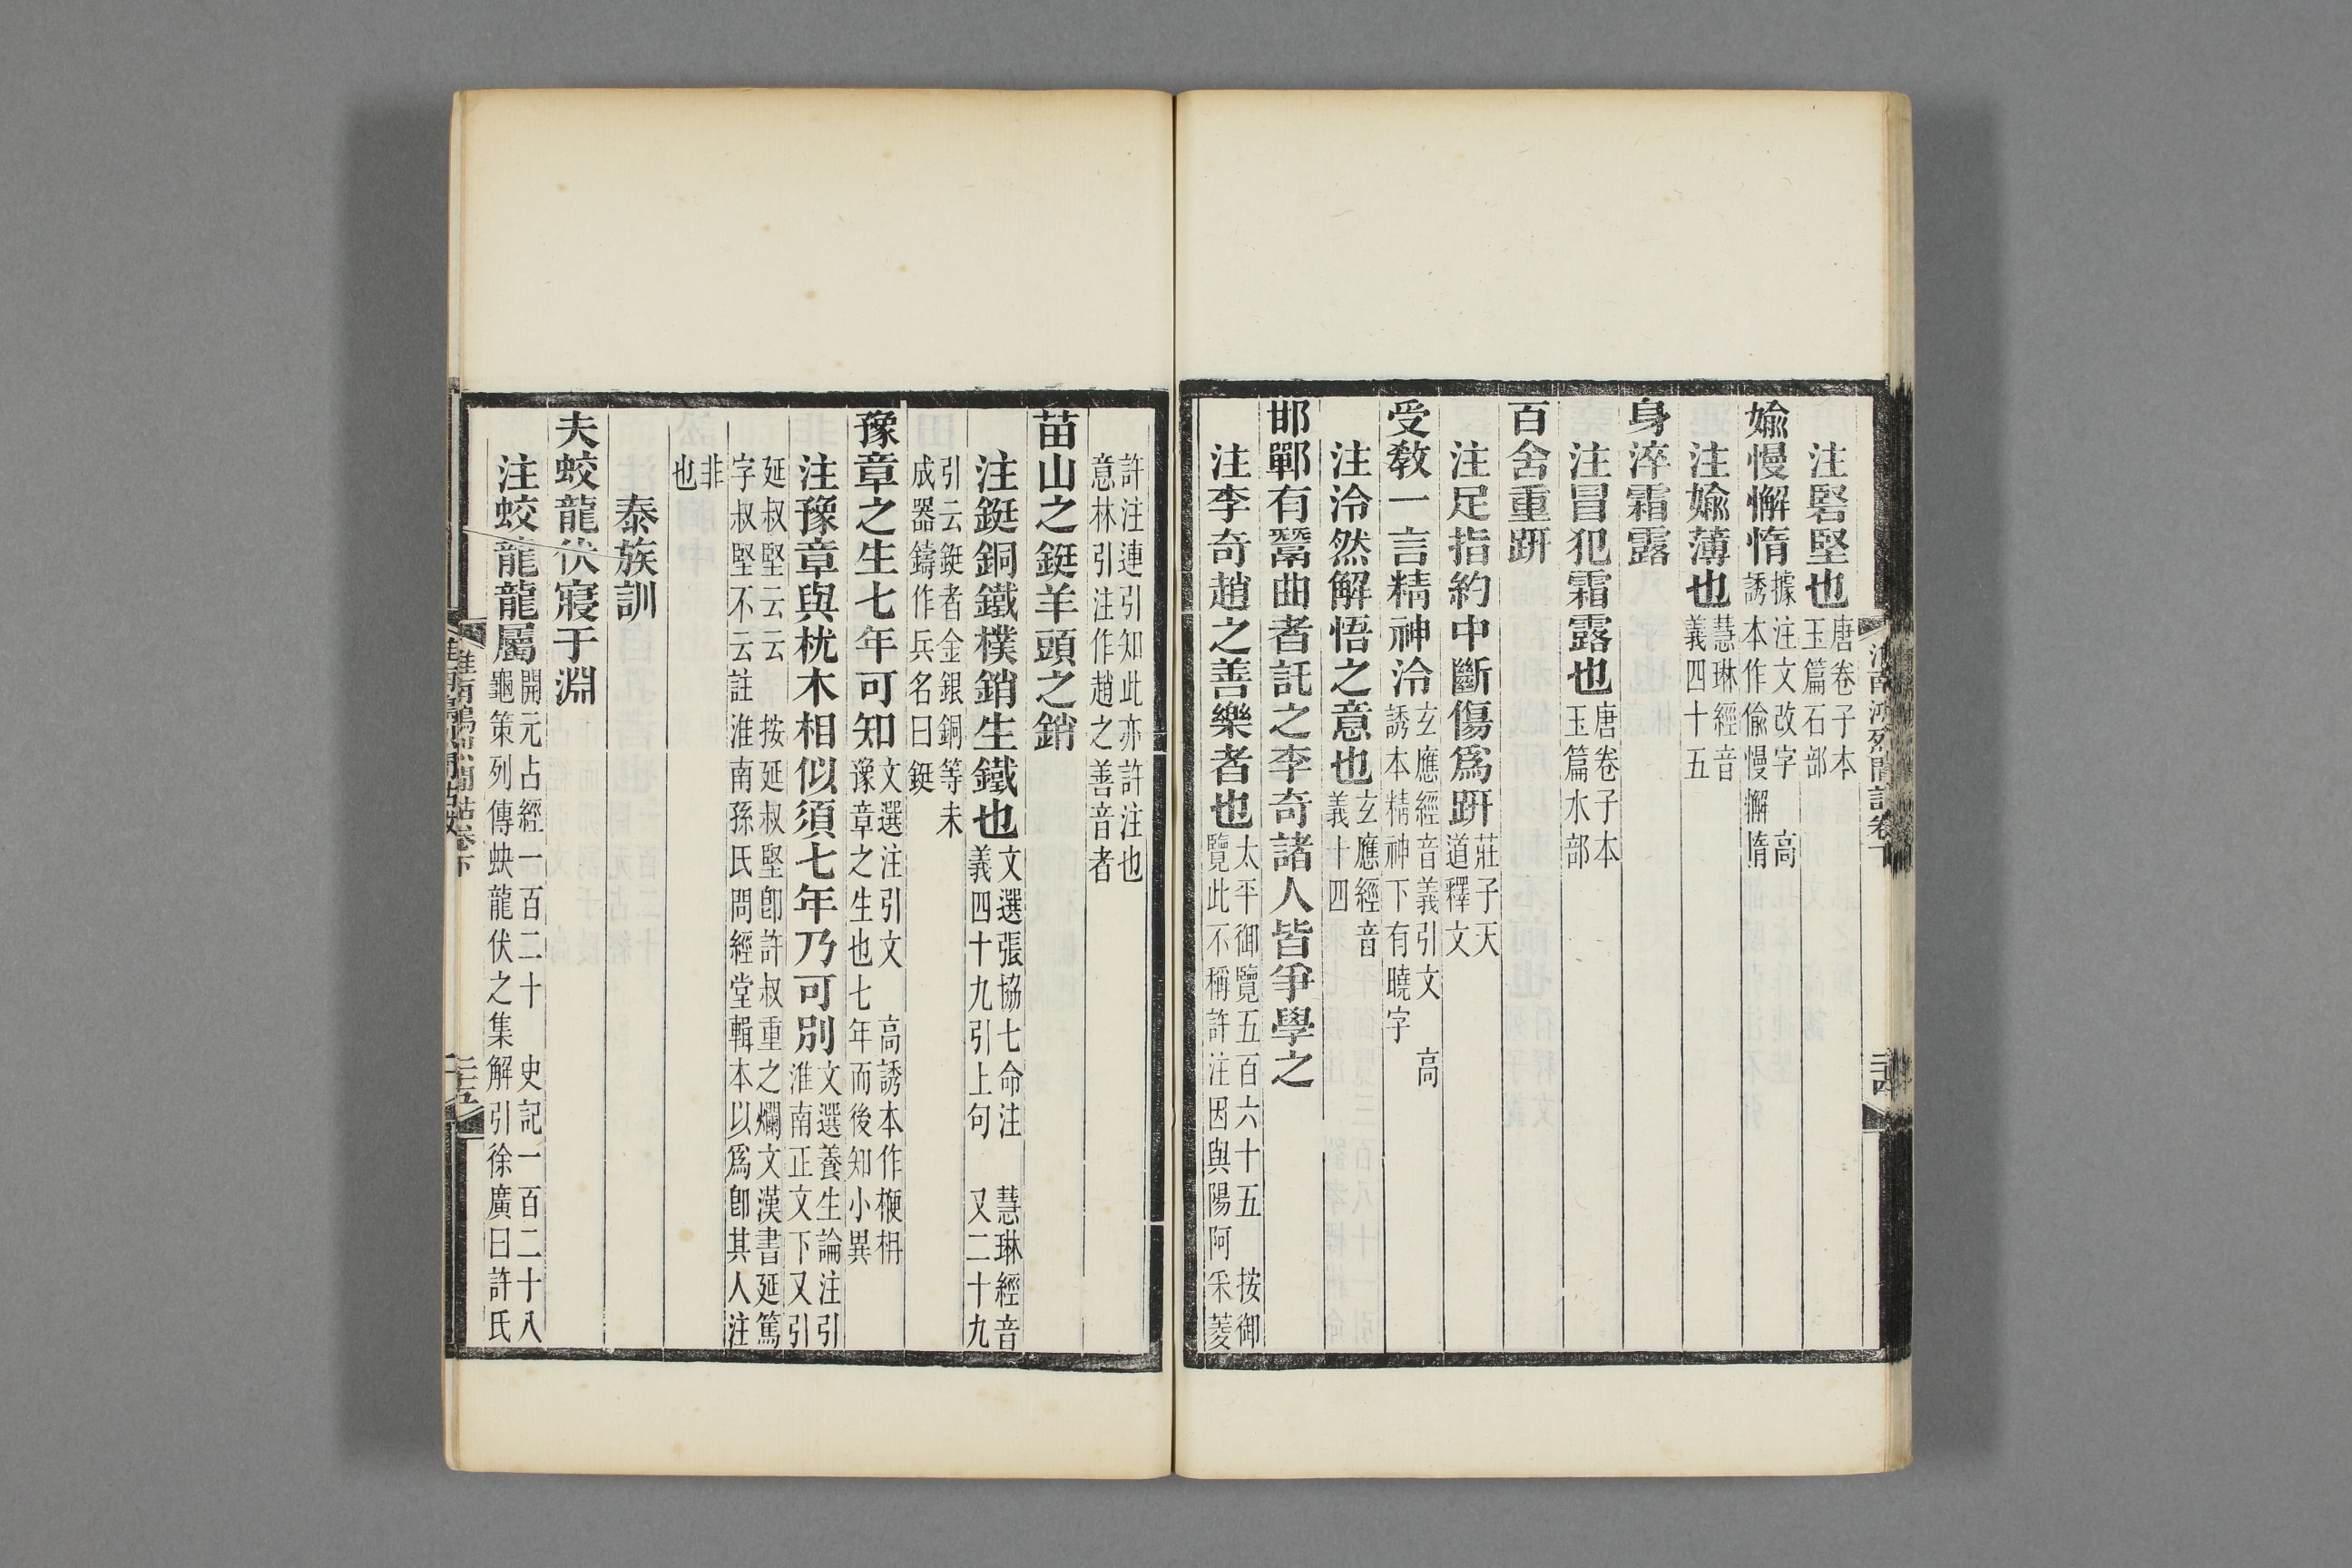 注硻堅也唐卷子本玉篇石部
婾慢懈惰據注文改字 高誘本作偷慢懈惰
注婾薄也慧琳經音義四十五
身淬霜露
注冒犯霜露也唐卷子本玉篇水部
百舍重趼
注足指約中斷傷爲趼莊子天道釋文
受教一言精神泠玄應經音義引文 高誘本精神下有曉字
注泠然解悟之意也玄應經音義十四
邯鄲有鬻曲者託之李奇諸人皆爭學之
注李奇趙之善樂者也太平御覽五百六十五 按御覽此不稱許注因與陽阿采菱
許注連引知此亦許注也意林引注作趙之善音者
苗山之鋌羊頭之銷
注鋌銅鐵樸銷生鐵也文選張協七命注 慧琳經音義四十九引上句 又二十九
引云鋌者金銀銅等未成器鑄作兵名曰鋌
豫章之生七年可知文選注引文 高誘本作梗枏豫章之生也七年而後知小異
注豫章與枕木相似須七年乃可別文選養生論注引淮南正文下又引
延叔堅云云 按延叔堅卽許叔重之爛文漢書延篤字叔堅不云註淮南孫氏問經堂輯本以爲卽其人注
非也
泰族訓
夫蛟龍伏寢于淵
注蛟龍龍屬開元占經一百二十 史記一百二十八龜策列傳蚗龍伏之集解引徐廣曰許氏